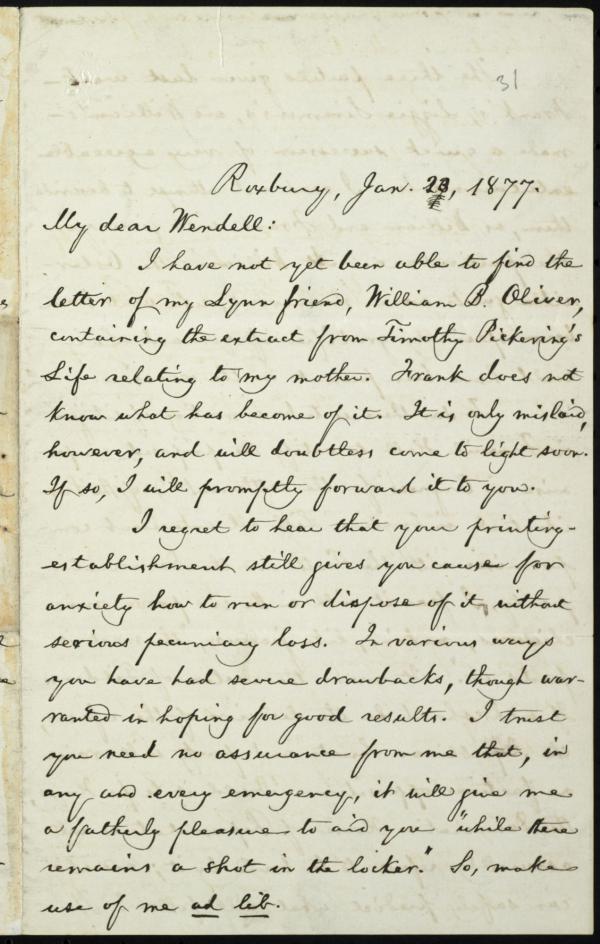 31
Roxbury, Jan. 23, 1877.
My dear Wendell:
I have not yet been able to find the
letter of my Lynn friend, William B. Oliver,
containing the extract from Timothy Pickering's
Life relating to my mother. Frank does not
know what has become of it. It is only mislaid,
however, and will doubtless come to light soon.
If so, I will promptly forward it to you.
I regret to hear that your printing-
establishment still gives you cause for
anxiety how to run or dispose of it, without
serious pecuniary loss. In various ways
you have had severe drawbacks, though war-
ranted in hoping for good results. I trust
you need no assurance from me that, in
any and every emergency, it will give me
a fatherly pleasure to aid you "while there
remains a shot in the locker." So, make
use of me ad lib.